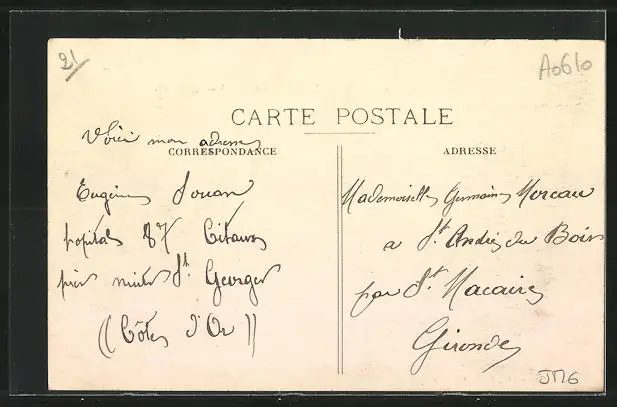 21
A0610
CARTE POSTALE
Voici mon adresse
CORRESPONDANCE
Eugène Jouan
hopital 87 Citeaux
près nuits St. Georges
((Côte d'Or))
ADRESSE
Mademoiselle Germaine Moreau
a St. André du Bois
par St. Macaire
Gironde